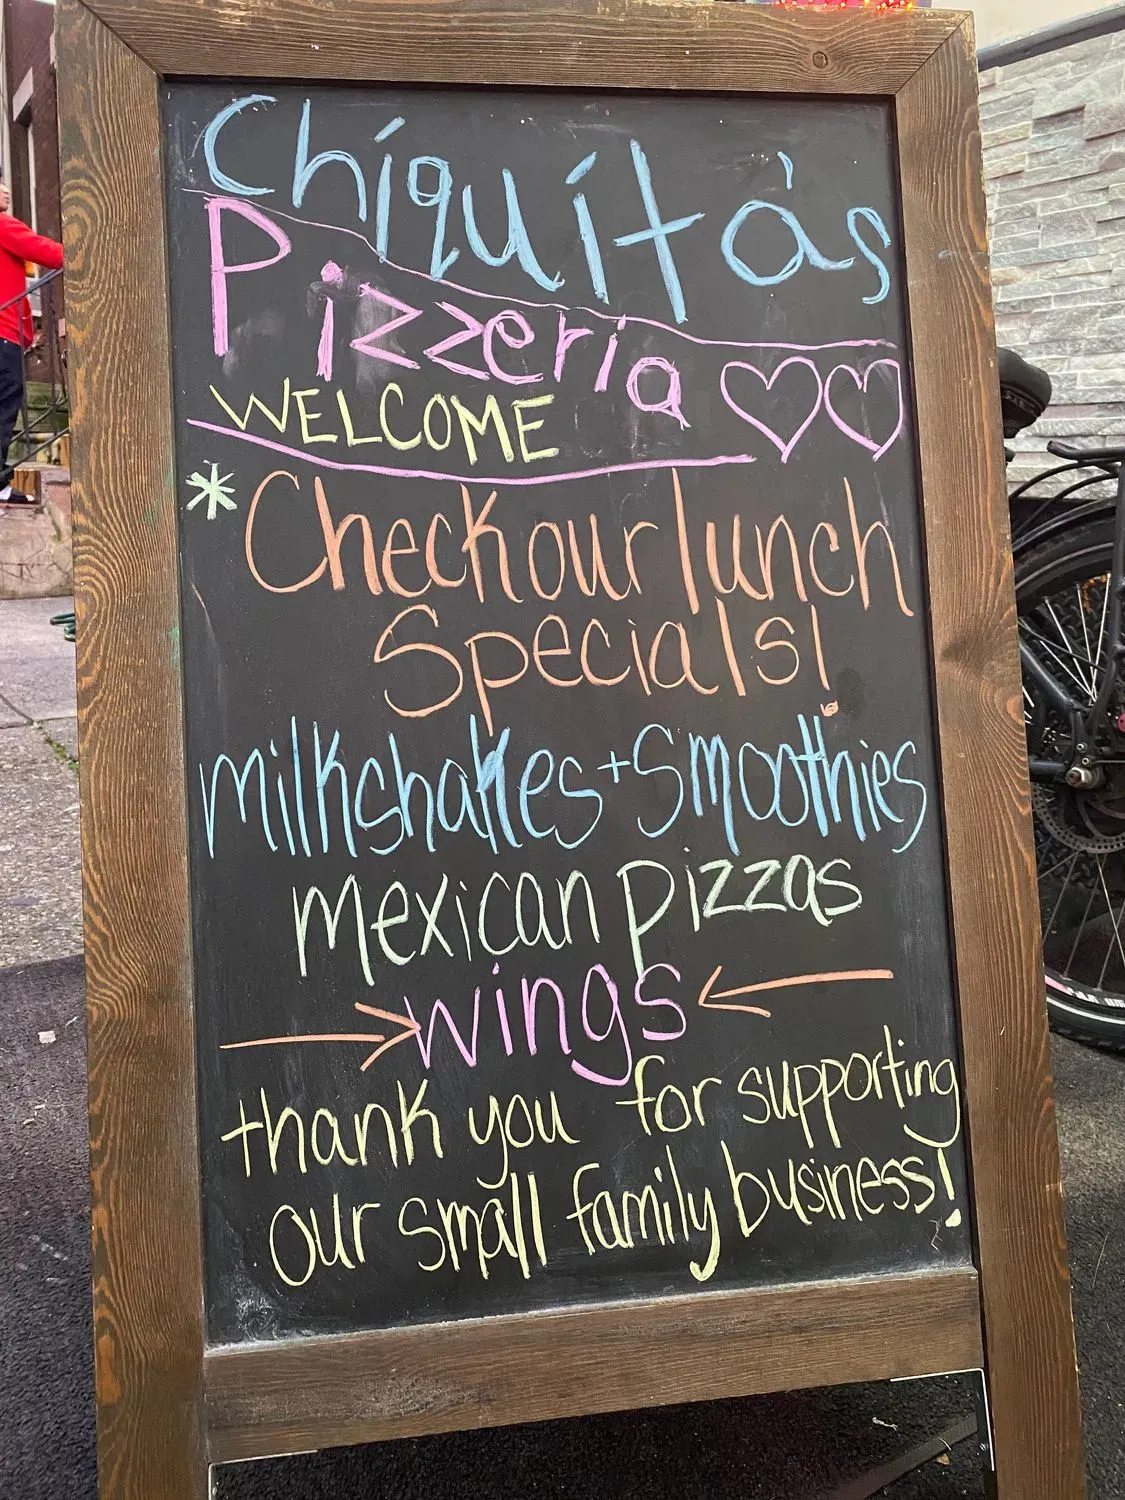 Chiquita's
Pizzeria
WELCOME
*Check our lunch
Specials!
milkshakes + Smoothies
mexican pizzas
wings
thank you for supporting
our small family business!